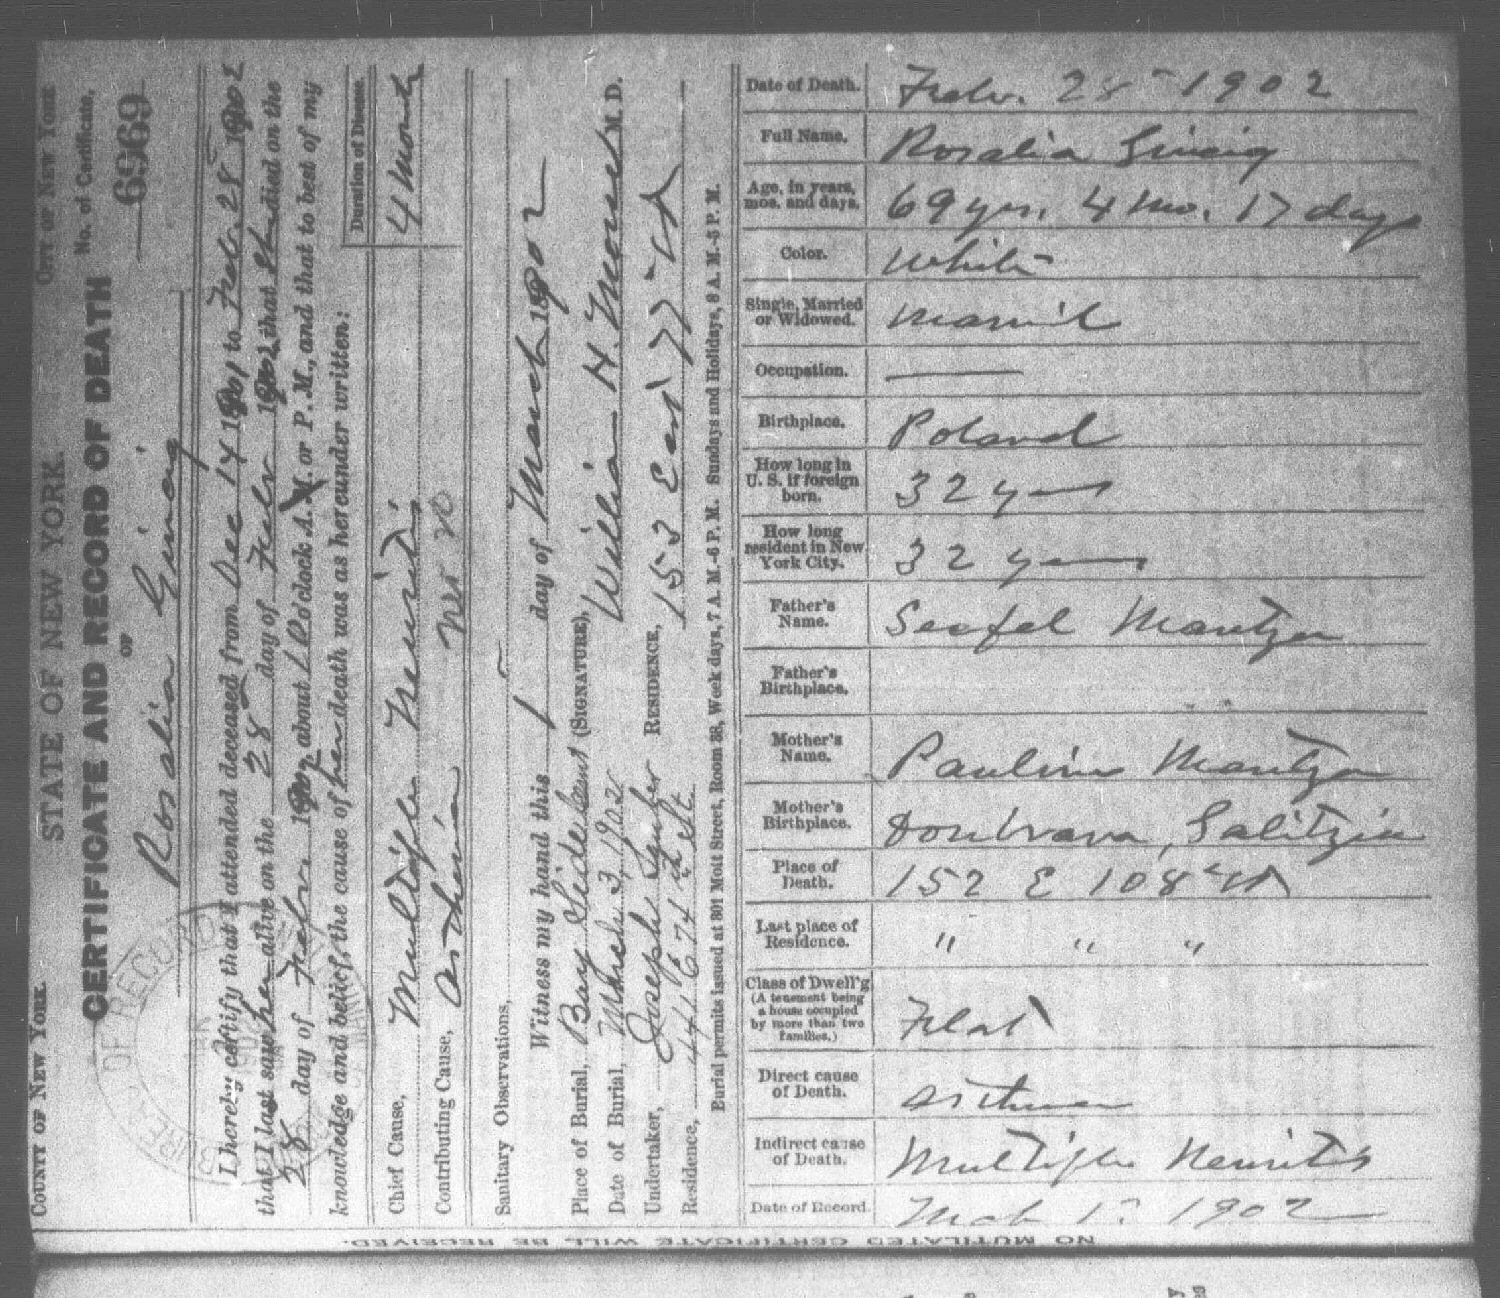 COUNTY OF NEW YORK. CITY OF NEW YORK
STATE OF NEW YORK.
No. of Certificate,
6969
CERTIFICATE AND RECORD OF DEATH
OF
Rosalia
I hereby certify that I attended deceased from Dec 14 1901 to Feb. 28 1902
that I last saw her alive on the 28 day of Feby 1902 that she died on the
28 day of Feby 1902 about o'clock A. M. or P. M., and that to best of my
knowledge and belief, the cause of her death was as hereunder written:
Duration of Disease.
Chief Cause, Multiple Neuritis 4 Month
Contributing Cause, asthenia
Sanitary Observations,
Witness my hand this 1 day of March 1902
Place of Burial, Bay Side (SIGNATURE), William H. M. D.
Date of Burial, March 3, 1902
Undertaker, Joseph RESIDENCE, 153 East 77 St
Residence, 441 E 74th St.
Burial permits issued at 301 Mott Street, Room 38, Week days, 7 A. M.-6 P. M. Sundays and Holidays, 8 A. M.-5 P. M.
Date of Death. Feb. 28 1902
Full Name. Rosalia
Age, in years, mos. and days. 69 yrs. 4 mo. 17 days
Color. White
Single, Married or Widowed. Married
Occupation. —
Birthplace. Poland
How long in U. S. if foreign born. 32 years
How long resident in New York City. 32 years
Father's Name.
Father's Birthplace.
Mother's Name. Pauline
Mother's Birthplace. Galitzia
Place of Death. 152 E 108th St
Last place of Residence. " " "
Class of Dwell'g (A tenement being a house occupied by more than two families.) Flat
Direct cause of Death.
Indirect cause of Death. Multiple Neuritis
Date of Record. 1902
NO MUTILATED CERTIFICATE WILL BE RECEIVED.